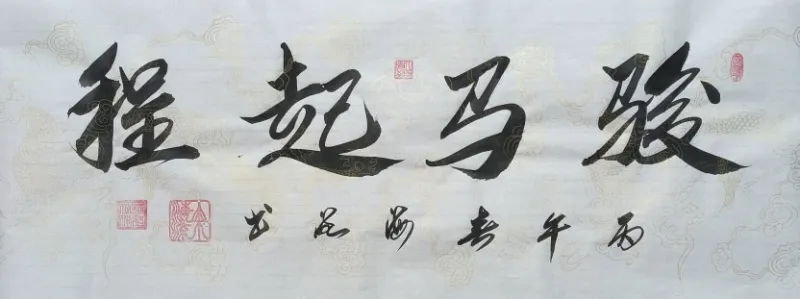 骏马起程
丙午春海洺书